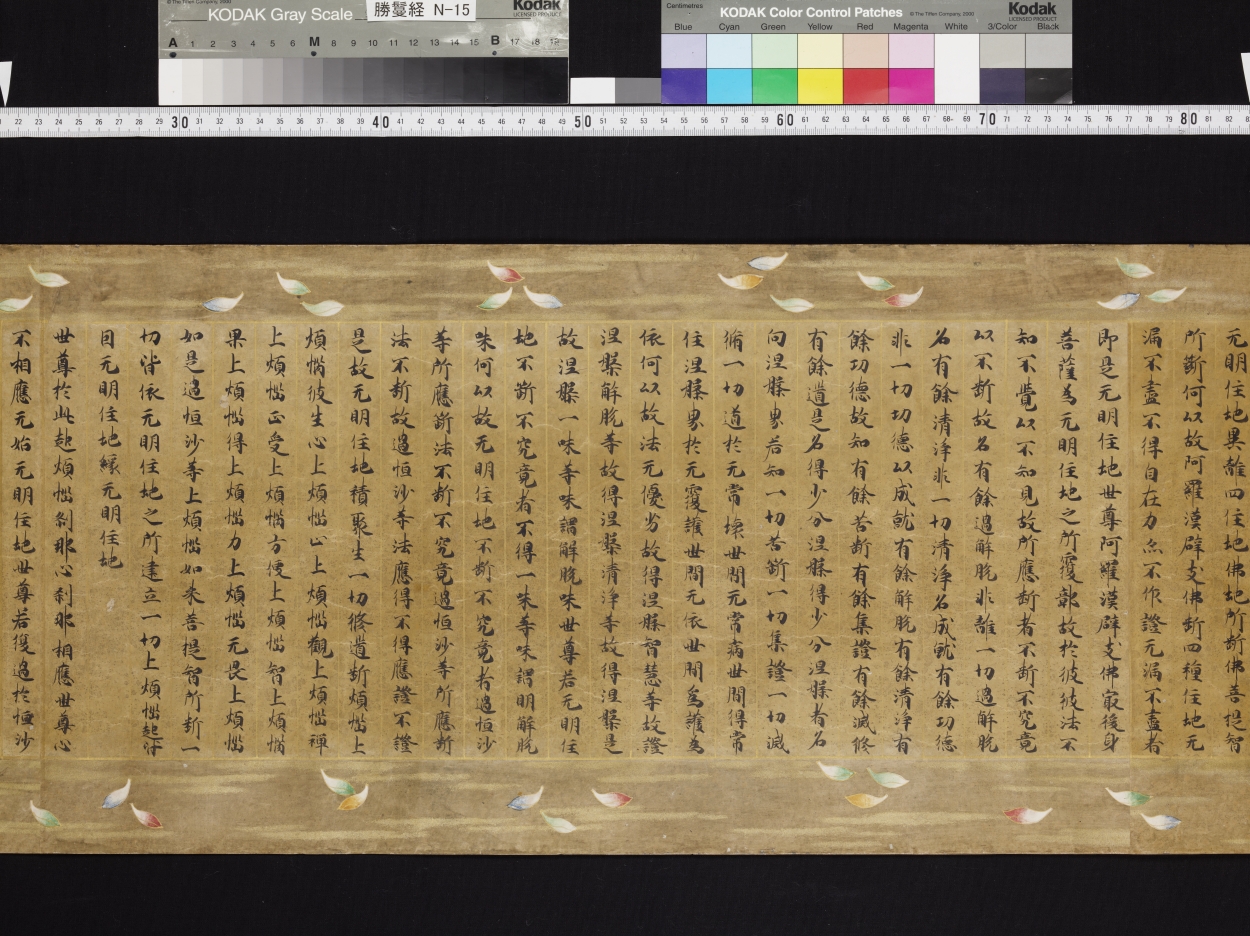 KODAK Gray Scale
Kodak
LICENSED PRODUCT
勝鬘経 N-15
A 1 2 3 4 5 6 M 8 9 10 11 12 13 14 15 B 17 18 19
Centimetres
KODAK Color Control Patches
© The Tiffen Company 2000
Kodak
LICENSED PRODUCT
Blue Cyan Green Yellow Red Magenta White 3/Color Black
22 23 24 25 26 27 28 29 30 31 32 33 34 35 36 37 38 39 40 41 42 43 44 45 46 47 48 49 50 51 52 53 54 55 56 57 58 59 60 61 62 63 64 65 66 67 68 69 70 71 72 73 74 75 76 77 78 79 80 81 82
无明住地異離四住地佛地所断佛菩提智
所断何以故阿羅漢辟支佛断四種住地无
漏不盡不得自在力亦不作證无漏不盡者
即是无明住地世尊阿羅漢辟支佛㝡後身
菩薩為无明住地之所覆鄣故於彼彼法不
知不覺以不知見故所應断者不断不究竟
以不断故名有餘過解脱非離一切過解脱
名有餘清淨非一切清淨名成就有餘功德
非一切功德以成就有餘解脱有餘清淨有
餘功德故知有餘苦断有餘集證有餘滅修
有餘道是名得少分涅槃得少分涅槃者名
向涅槃界若知一切苦断一切集證一切滅
脩一切道於无常壞世間无常病世間得常
住涅槃界於无覆護世間无依世間為護為
依何以故法无優劣故得涅槃智慧等故證
涅槃解脱等故得涅槃清淨等故得涅槃是
故涅槃一味等味謂解脱味世尊若无明住
地不断不究竟者不得一味等味謂明解脱
味何以故无明住地不断不究竟者過恒沙
等所應断法不断不究竟過恒沙等所應断
法不断故過恒沙等法應得不得應證不證
是故无明住地積聚生一切修道断煩惱上
煩惱彼生心上煩惱止上煩惱觀上煩惱禪
上煩惱正受上煩惱方便上煩惱智上煩惱
果上煩惱得上煩惱力上煩惱无畏上煩惱
如是過恒沙等上煩惱如来菩提智所断一
切皆依无明住地之所建立一切上煩惱起皆
因无明住地緣无明住地
世尊於此起煩惱刹那心刹那相應世尊心
不相應无始无明住地世尊若復過於恒沙